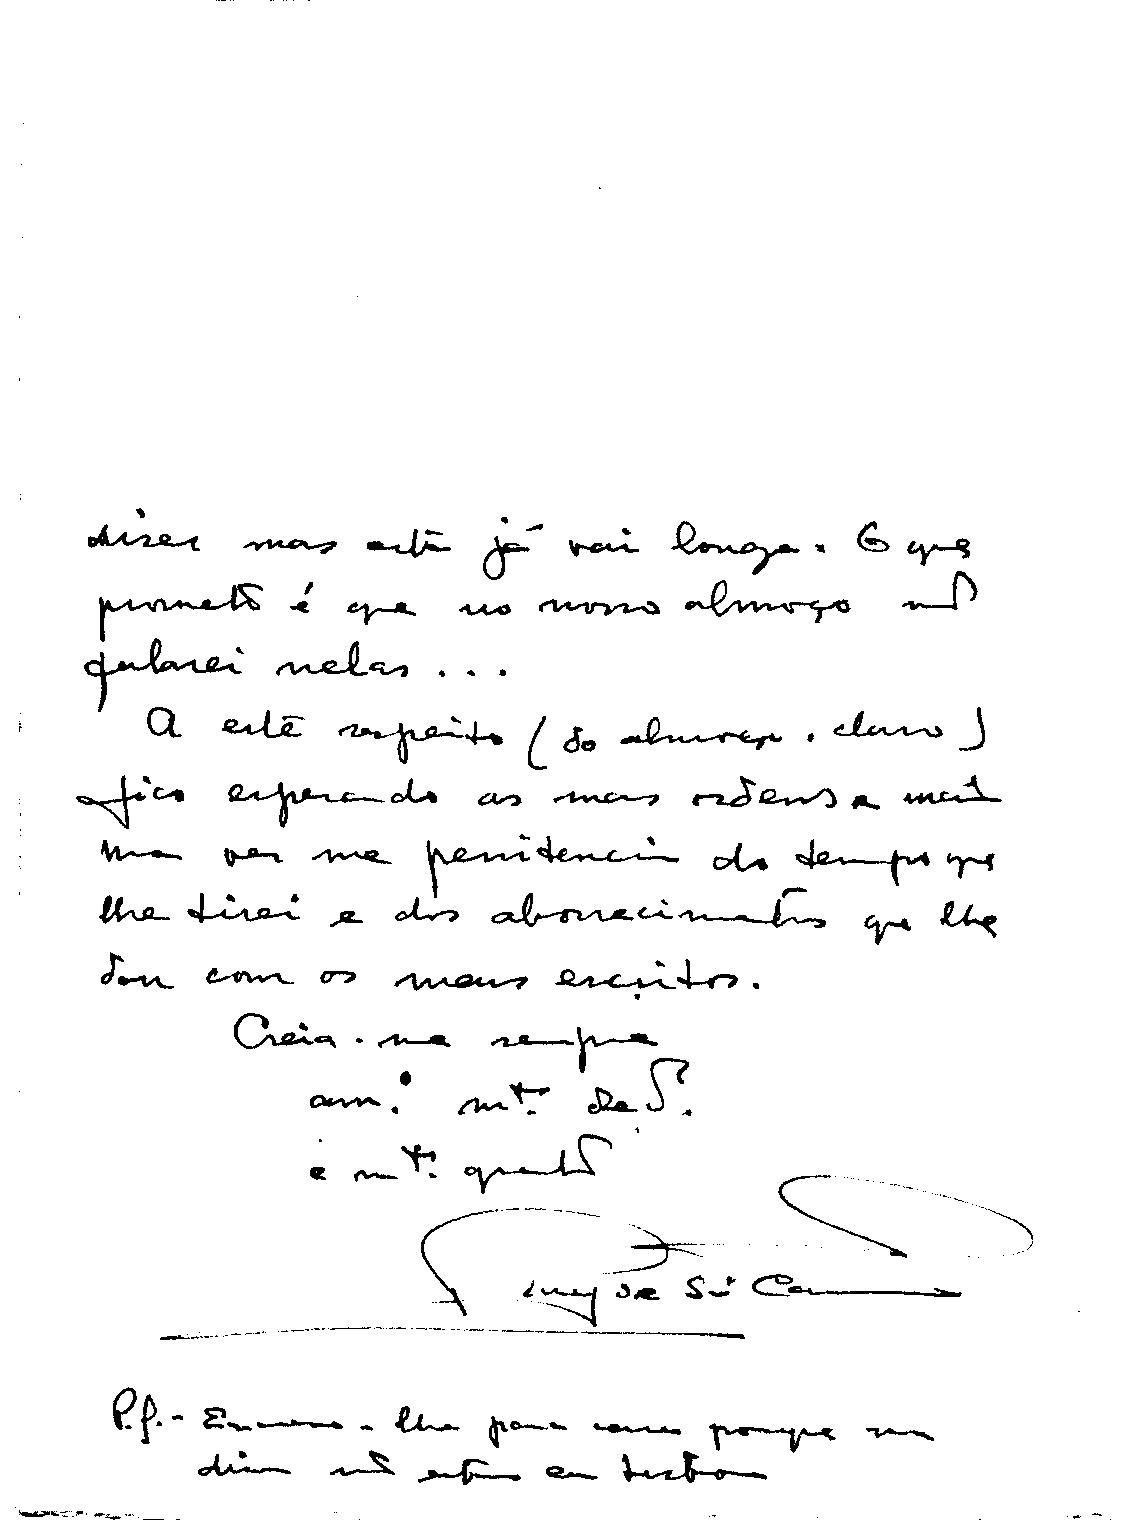 dizer mas esta já vai longa. O que
prometo é que no nosso almoço não
falarei nelas...
A este respeito (do almoço, claro)
fico esperando as suas ordens e mais
uma vez me penitencio do tempo que
lhe tirei e dos aborrecimentos que lhe
dou com os meus escritos.
Creia-me sempre
am.º mt.º ded.
e mt.º grato
Ruy de Sá Carneiro
P.S.- Escrevo-lhe para casa porque me
dizem não estar em Lisboa